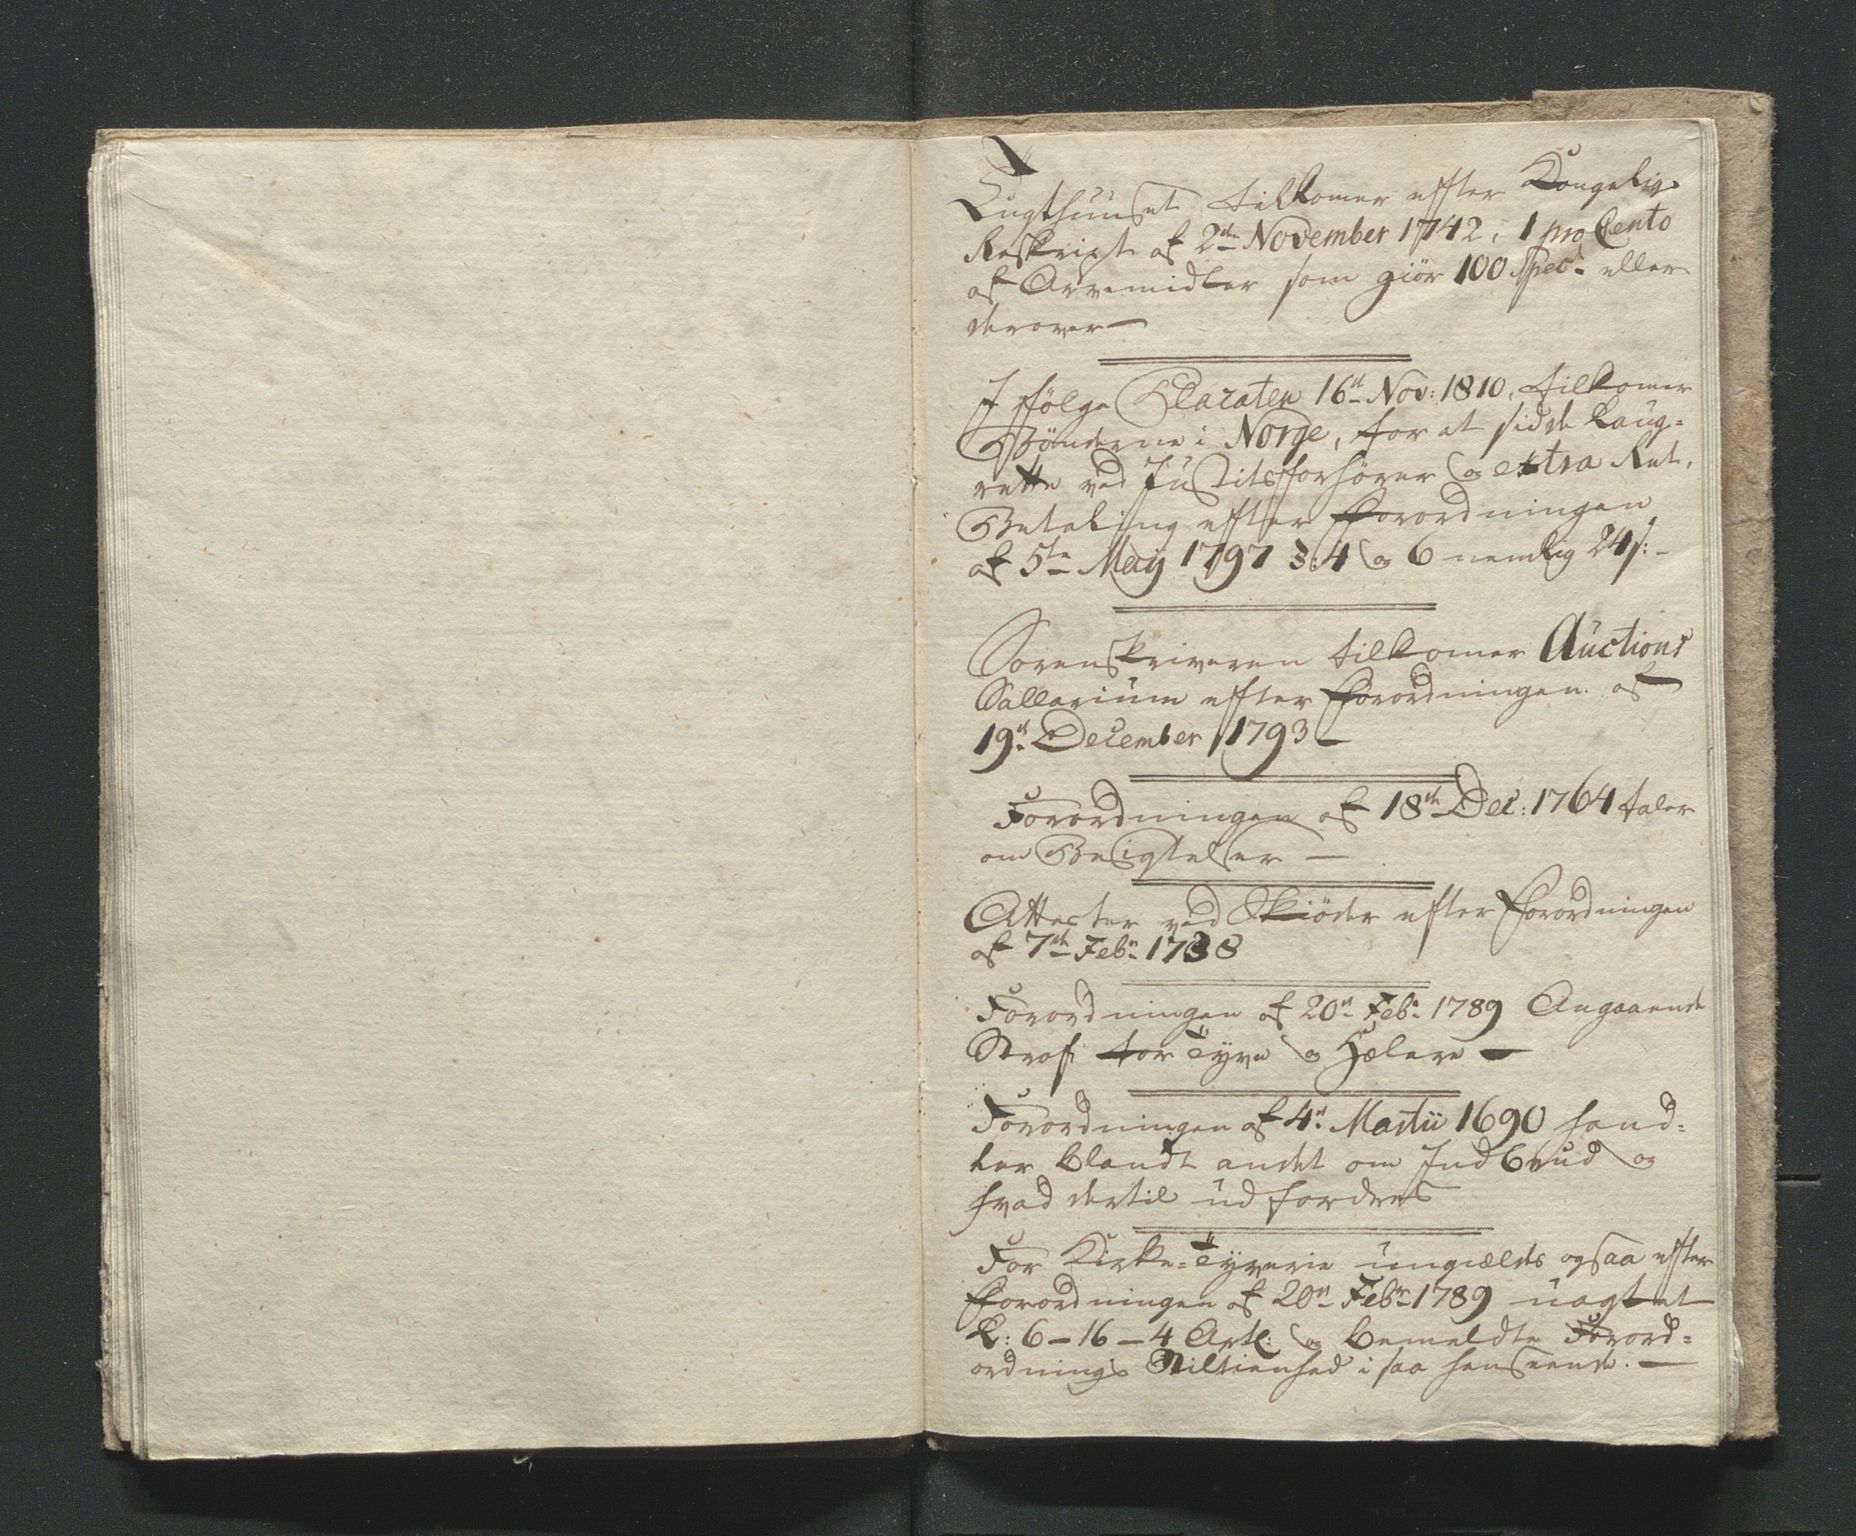 Tugthuuset tilkomer efter Kongelig
Reskript af 2den November 1742, 1 pro Cento
af Arvemidler som giør 100 Specd. eller
derover —
I følge Placaten 16de Nov: 1810, tilkomer
Bønderne i Norge, for at sidde Laug-
rette ved Justitsforhører og extra Ret,
Betaling efter Forordningen
af 5te May 1797 §: 4 og 6 nemlig 24 s: –
Sorenskriveren tilkomer Auctions
Sallarium efter Forordningen af
19de December 1793 —
Forordningen af 18de Dec: 1764 taler
om Besigtelser —
Attester ved Skiøder efter Forordningen
af 7de Febr. 1738
Forordningen af 20de Feb. 1789 Angaaende
Straf for Tyve og Hælere —
Forordningen af 4de Martii 1690 hand-
ler blandt andet om Indbrud og
hvad dertil udfordres
For Kirke-Tyverie ungiælds ogsaa efter
Forordningen af 20de Febr. 1789 uagtet
L: 6 – 16 – 4 Artl: og bemeldte Forord-
ordnings Stiltienhed i saa henseende. —